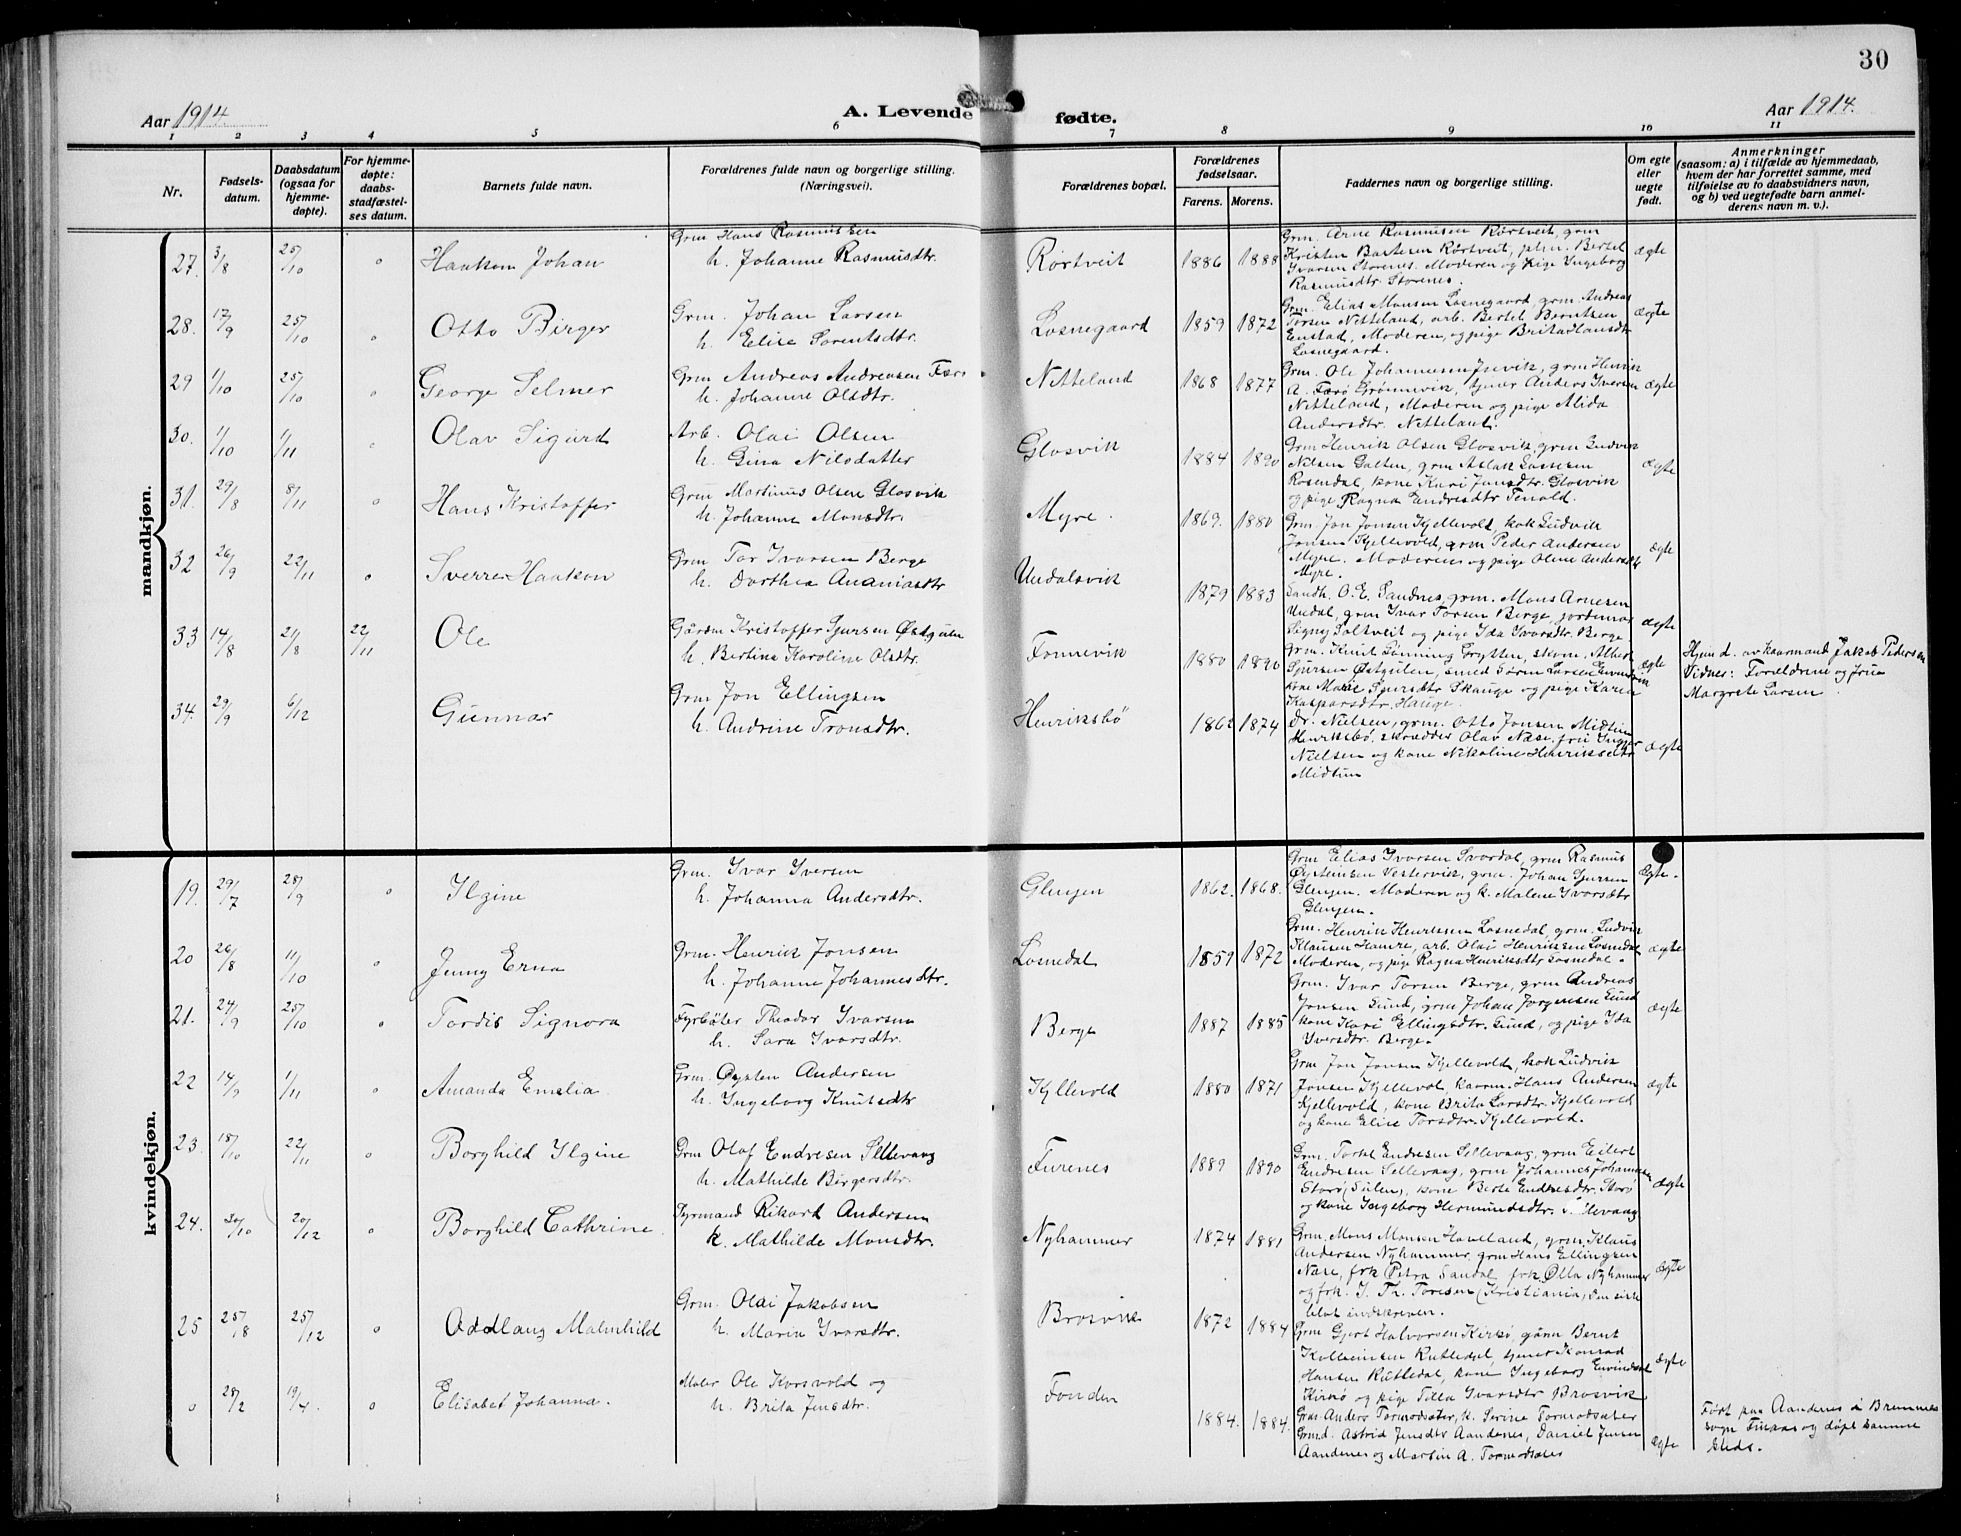 30
Aar 1914. A. Levende fødte. Aar 1914.
1 2 3 4 5 6 7 8 9 10 11
Nr.
Fødsels-
datum.
Daabsdatum
(ogsaa for
hjemme-
døpte).
For hjemme-
døpte:
daabs-
stadfæstel-
ses datum.
Barnets fulde navn.
Forældrenes fulde navn og borgerlige stilling.
(Næringsvei).
Forældrenes bopæl.
Forældrenes
fødselsaar.
Farens. Morens.
Faddernes navn og borgerlige stilling.
Om egte
eller
uegte
født.
Anmerkninger
(saasom: a) i tilfælde av hjemmedaab,
hvem der har forrettet samme, med
tilføielse av to daabsvidners navn,
og b) ved uegtefødte barn anmel-
derens navn m. v.).
mandkjøn.
27. 3/8 25/10 " Haakon Johan
Grm Hans Rasmussen
h. Johanne Rasmusdtr.
Rørtveit 1886 1888
Grm. Arne Rasmusen Rørtveit, grm
Kristen Bartesen Rørtveit, Bertel
Ivarsen Storenes. Moderen og pige Ingeborg
Rasmusdtr. Storenes.
ægte
28. 17/9 25/10 " Otto Birger
Grm. Johan Larsen
h. Elise Sorentsdtr.
Losnegaard 1859 1872
Grm. Elias Monsen Losnegaard, grm. Andreas
Torsen Netteland, arb. Bertel Berntsen
Enstad, Moderen, og pige Brita Hansdtr
Losnegaard.
ægte
29 1/10 25/10 " George Selmer
Grm Andreas Andreasen Færø
h. Johanne Olsdtr.
Netteland 1868 1877
Grm. Ole Johannesen grm Henrik
A. Færø Grønnevik, tjener Anders Iversen
Netteland, Moderen og pige Alida
Andersdtr. Netteland.
ægte
30. 11/10 1/11 " Olav Sigurd
Arb. Olai Olsen
h. Gina Nilsdatter
Glosvik 1884 1890
Grm Henrik Olsen Glosvik, grm Ludvik
Nilsen Galten, grm Aslak Lassesen
Rosendal, kone Kari Jonsdtr. Glosvik
og pige Ragna Endresdtr Tenold.
ægte
31. 29/8 8/11 " Hans Kristoffer
Grm Martinus Olsen Glosvik
h. Johanne Monsdtr.
Myre. 1869. 1880
Grm. Jon Jonsen Kjellevold, kok Ludvik
Jonsen Kjellevold, grm Peder Andersen
Myre. Moderen og pige Oline Andersdtr
Myre.
ægte
32 26/9 22/11 " Sverre Haakon
Grm Tor Ivarsen Berge
h. Dorthea Ananiasdtr
Undalsvik 1879 1883
Landh. O. E. Sandnes, grm. Mons Arnesen
Undal, grm Ivar Torsen Berge, jordmor
Signy Saltveit og pige Ida Ivarsdtr. Berge
ægte
33 14/8 21/8 22/11 Ole
Gårdm Kristoffer Sjursen Østgulen
h. Bertina Karoline Olsdtr.
Fonnevik 1880 1890
Grm. Knut Lønning Grytten, skom. Albert
Sjursen Østgulen, smed Søren Larsen Eivendvik
kone Marie Sjursdtr Skauge og pige Karen
Kasparsdtr. Hauge.
ægte
Hjemd. av kaarmand Jakob Pedersen
Vidnes: Forældrene og fru
Margrete Larsen.
34. 29/9 6/12 Gunnar
Grm Jon Ellingsen
h. Andrine Tronsdtr.
Henriksbø 1862 1874
Dr. Nielsen, grm. Otto Jonsen Midtun
Henriksbø, skrædder Olav Nase, fru Inger
Nielsen og kone Nikoline Henriksdtr
Midtun
ægte
kvindekjøn.
19. 29/7 28/9 " Ilgine
Grm. Ivar Iversen
h. Johanna Andersdtr.
Glengen 1862. 1868.
Grm Elias Ivarsen Svardal, grm Rasmus
Øysteinsen Vestervik, grm. Johan Sjursen
Glengen. Moderen og k. Malene Ivarsdtr
Glengen.
Ægte.
20 26/8 11/10 " Jenny Erna
Grm. Henrik Jonsen
h. Johanne Johannesdtr.
Losnedal 1859 1872
Grm. Henrik Henriksen Losnedal, grm. Ludvik
Klausen Hamre, arb. Olai Henriksen Losnedal
Moderen, og pige Ragna Henriksdtr Losnedal.
ægte
21. 24/9 25/10 " Tordis Signora
Fyrbøter Theodor Ivarsen
h. Sara Ivarsdtr.
Berge 1887 1885
Grm. Ivar Torsen Berge, grm Andreas
Jonsen Sund, grm Johan Jørgensen Sund
kone Kari Ellingsdtr. Sund, og pige Ida
Iversdtr. Berge.
ægte
22 14/9 1/11 " Amanda Emelia
Grm. Øysten Andersen
h. Ingeborg Knutsdtr
Kjellevold 1880 1871
Grm Jon Jonsen Kjellevold, kok Ludvik
Jonsen Kjellevol, kaarm. Hans Andersen
Kjellevold, kone Brita Larsdtr. Kjellevold
og kone Elise Torsdtr. Kjellevold.
ægte
23. 18/10 22/11 " Borghild Ilgine
Grm Olaf Endresen Sellevaag
h. Mathilde Birgersdtr.
Furenes 1889 1890
Grm. Torkel Endresen Sellevaag, grm Eilert
Endresen Sellevaag, grm Johannes Johannesen
Storø (Sulen), kone Berte Endresdtr. Storø
og kone Ingeborg Hermundsdtr. Sellevaag
ægte
24. 30/10 20/12 " Borghild Cathrine
Fyrmand Rikard Andersen
h. Mathilde Monsdtr.
Nyhammer 1874 1881
Grm. Mons Monsen Haveland, grm. Klaus
Andersen Nyhammer, grm Hans Ellingsen
Nase, frk Petra Sandal, frk. Olla Nyhammer
og frk. I. Th. Toresen (Kristiania, den sidste
blot indskreven.
ægte
25 25/8 25/12 " Oddlaug Malmhild
Grm. Olai Jakobsen
h. Marie Ivarsdtr.
Brosvik 1872 1884
Grm Gjert Halvorsen Kirkø, gårm Bernt
Kolbeinsen Rutledal, tjener Konrad
Hansen Rutledal, kone Ingeborg Eivindsdtr
Kirkø og pige Tilla Ivarsdtr Brosvik
ægte
" 28/2 19/4 " Elisabet Johanna.
Maler Ole Korsvold og
h. Brita Jensdtr.
Fonden 1884. 1884.
Grm. Anders Tormodsæter, k. Serine Tormodsæter
Grmd. Astrid Jensdtr Aandenes, Daniel Jensen
Aandenes og Martin A. Tormodsæter
ægte
Født paa Aandenes i Bremnes
sogn Finaas og døpt samme
steds.